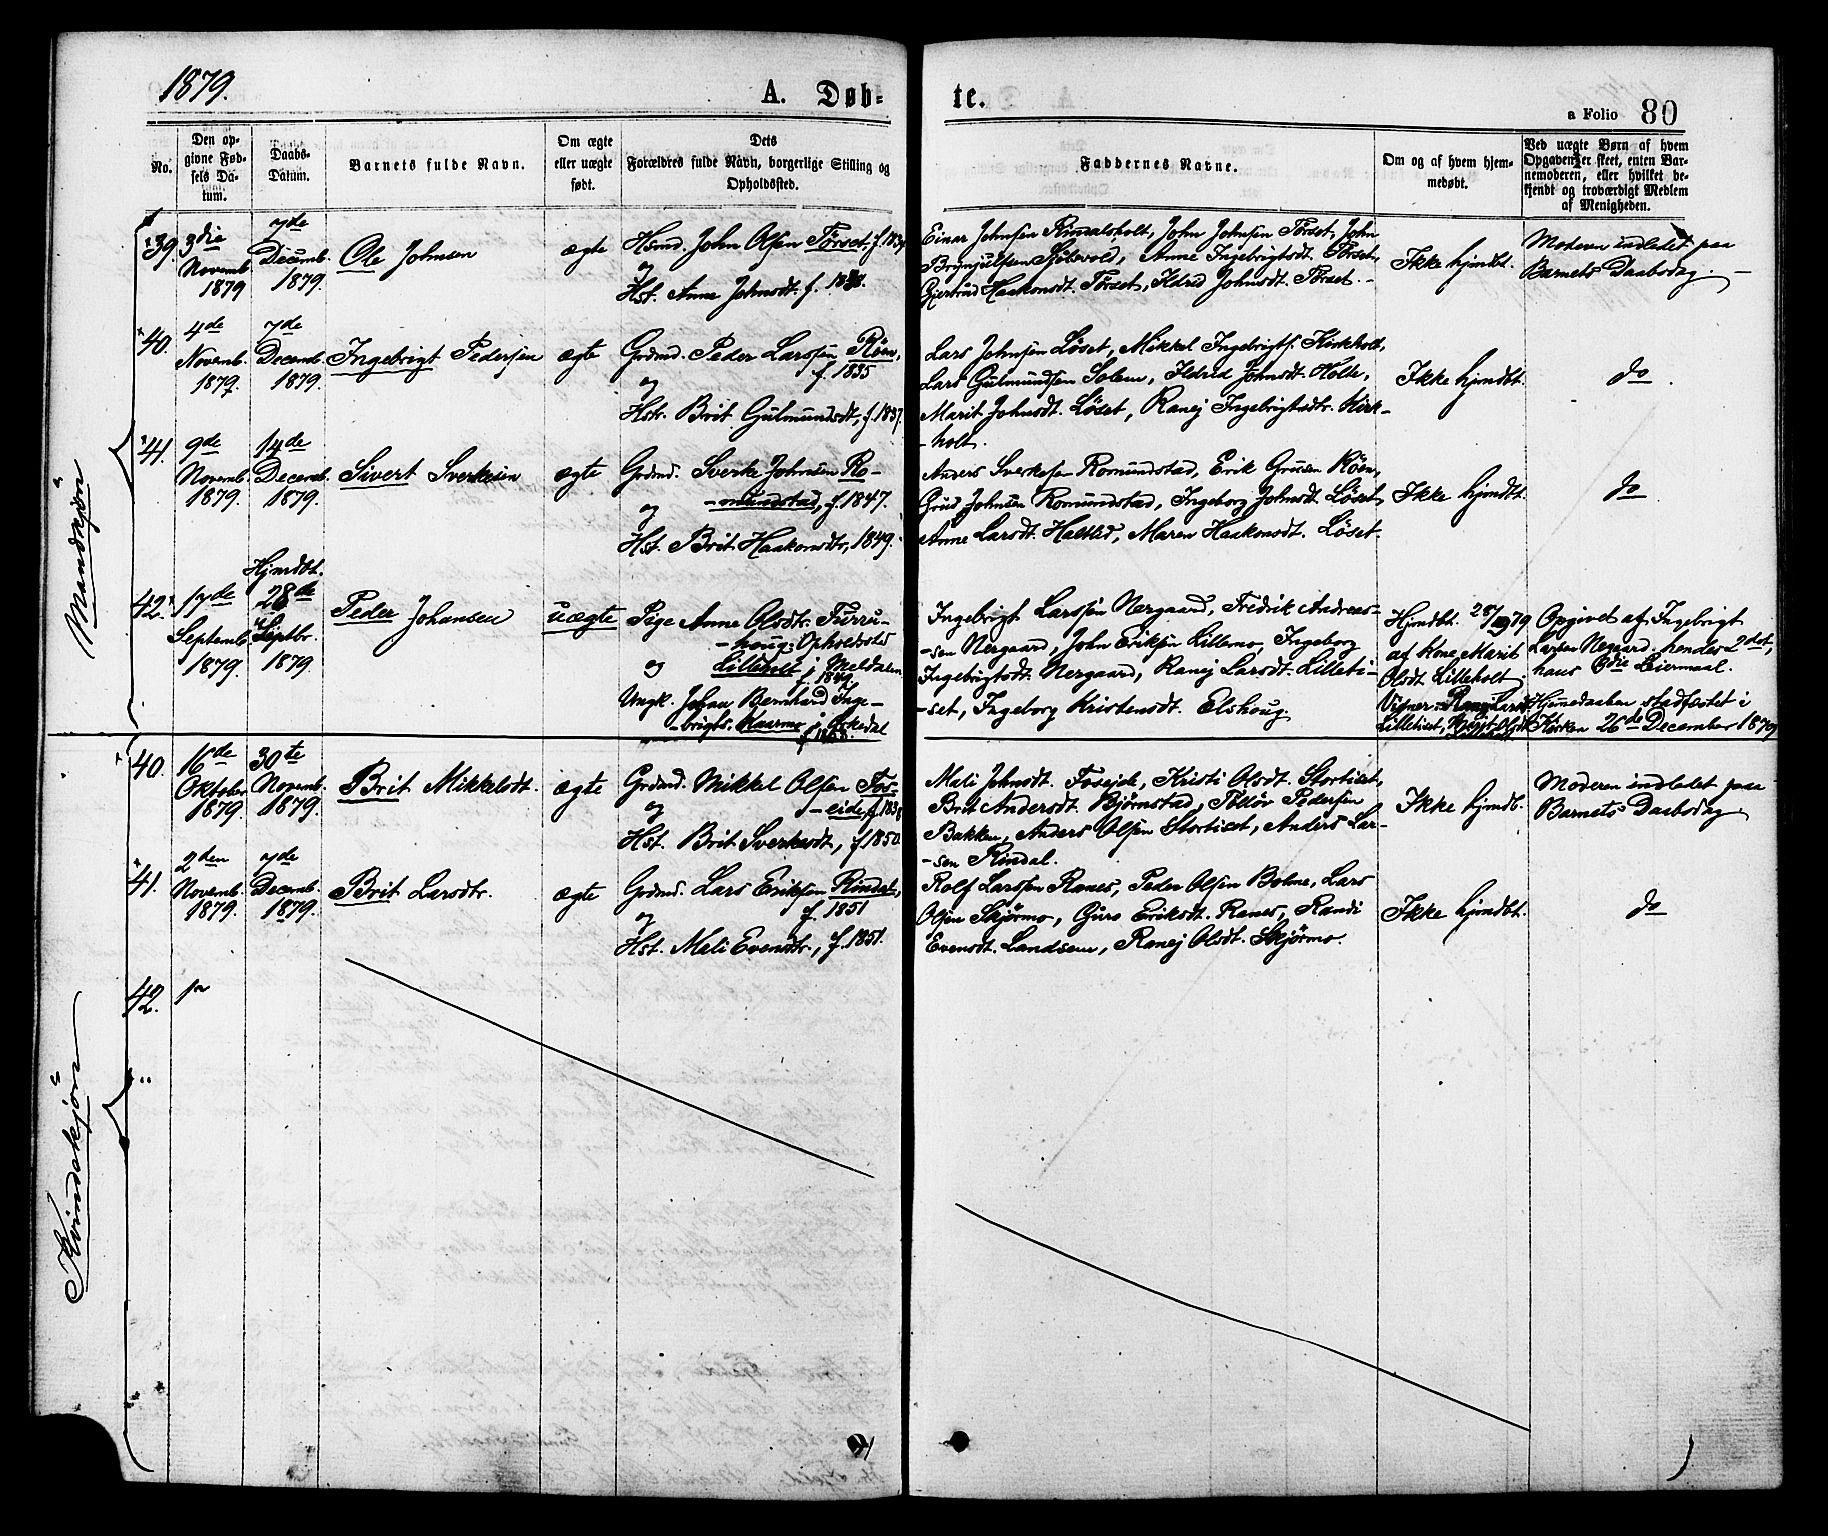 1879.
A. Døb-
te.
a Folio 80
No.
Den op-
givne Fød-
sels Da-
tum.
Daabs-
Datum.
Barnets fulde Navn.
Om ægte
eller uægte
født.
Dets
Forældres fulde Navn, borgerlige Stilling og
Opholdssted.
Faddernes Navne.
Om og af hvem hjem-
medøbt.
Ved uægte Børn af hvem
Opgaven er skeet, enten Bar-
nemoderen, eller hvilket be-
kjendt og troværdigt Medlem
af Menigheden.
Mandkjøn
39.
3die
Novemb.
1879
7de
Decemb.
1879.
Ole Johnsen
ægte
Hsmd. John Olsen Törset, f.
og
Hst. Anne Johnsdt. f.
Einar Johnsen Rindalsholt, John Johnsen Törset, John
Brynjulfsen Sjølsvold, Anne Ingebrigtsdt. Törset,
Gjertrud Haakonsdt. Törset, Ildrid Johnsdt. Törset.
Ikke hjmdbt.
Moderen indledet paa
Barnets Daabsdag.
40.
4de
Novemb.
1879.
7de
Decemb.
1879.
Ingebrigt Pedersen
ægte
Grdmd. Peder Larssen Röen,
f. 1835
og
Hstr. Brit Gulmundsdt, f. 1837.
Lars Johnsen Löset, Mikkel Ingebrigts. Kirkholt,
Lars Gulmundsen Solem, Ildrid Johnsdt. Holte,
Marit Johnsdt. Löset, Ranej Ingebrigtsdtr. Kirk-
-holt.
Ikke hjmdbt.
do.
41.
9de
Novemb.
1879.
14de
Decemb.
1879.
Sivert Sverkesen
ægte
Grdmd. Sverke Johnsen Ro-
-mundstad, f. 1847.
og
Hst. Brit Haakonsdtr, 1849.
Anders Sverkesen Romundstad, Erik Grutsen Röen,
Grud Johnsen Romundstad, Ingeborg Johnsdt. Löset,
Anne Larsdt. Halsted, Maren Haakonsdt. Löset.
Ikke hjmdbt.
do
42.
17de
Septemb.
1879.
Hjmdbt.
28de
Septbr.
1879.
Peder Johansen
uægte
Pige Anne Olsdtr. Furru-
-houg: Opholdssted
og Lilleholt i Meldalen
f. 1849.
Ungk. Johan Bernhard Inge-
-brigts. Kaarmo i Orkedal
Ingebrigt Larssen Nergaard, Fredrik Andreas-
-sen Nergaard, John Eriksen Lillemo, Ingeborg
Ingebrigtsdt. Nergaard, Ranej Larsdt. Lilleti-
-set, Ingeborg Kristensdt. Elshoug
Hjmdbt. 28/9 79
af Kone Marit
Olsdt Lilleholt.
Lilletiset, Marit Olsdt
Opgivet af Ingebrigt
Larsen Negaard. hendes 2det,
hans 3die Leiermaal.
Hjemmedaaben stadfæstet i
Kirken 26de December 1879
Kvindekjøn
40.
16de
Oktober
1879.
30te
Novemb.
1879.
Brit Mikkelsdt.
ægte
Grdmd. Mikkel Olsen Fos-
og -eide, f. 1838
Hst. Brit Sverkesdt, f. 1850.
Mali Johnsdt. Foseide, Kristi Olsdt. Stortiset,
Brit Andersdt. Bjørnstad, Tollöv Pedersen
Bakken, Anders Olsen Stortiset, Anders Lar-
-sen Rindal.
Ikke hjmdb.
Moderen indledet paa
Barnets Daabsdag
41.
2den
Novemb.
1879.
7de
Decemb.
1879.
Brit Larsdtr.
ægte
Grdmd. Lars Eriksen Rindal,
f. 1851
og
Hst. Mali Evensdtr., f. 1851.
Rolf Larssen Ranes, Peder Olsen Bolme, Lars
Olsen Skjörmo, Guro Eriksdt. Ranes, Randi
Evensdt. Landsem, Ranej Olsdt. Skjörmo.
Ikke hjmdbt.
do
42.